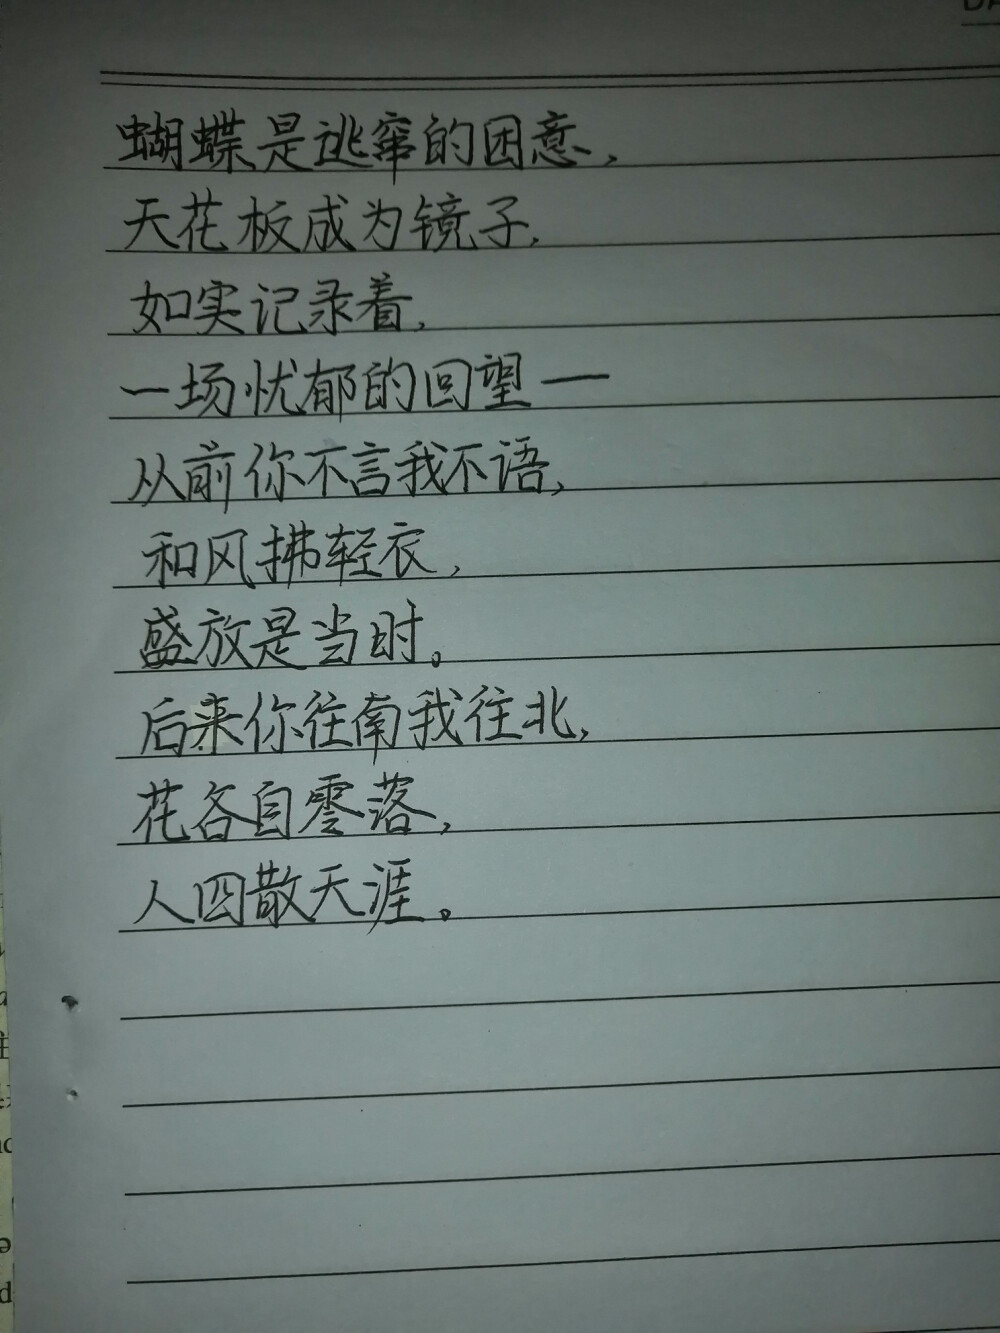 蝴蝶是逃窜的困意，
天花板成为镜子，
如实记录着，
一场忧郁的回望—
从前你不言我不语，
和风拂轻衣，
盛放是当时。
后来你往南我往北，
花各自零落，
人四散天涯。